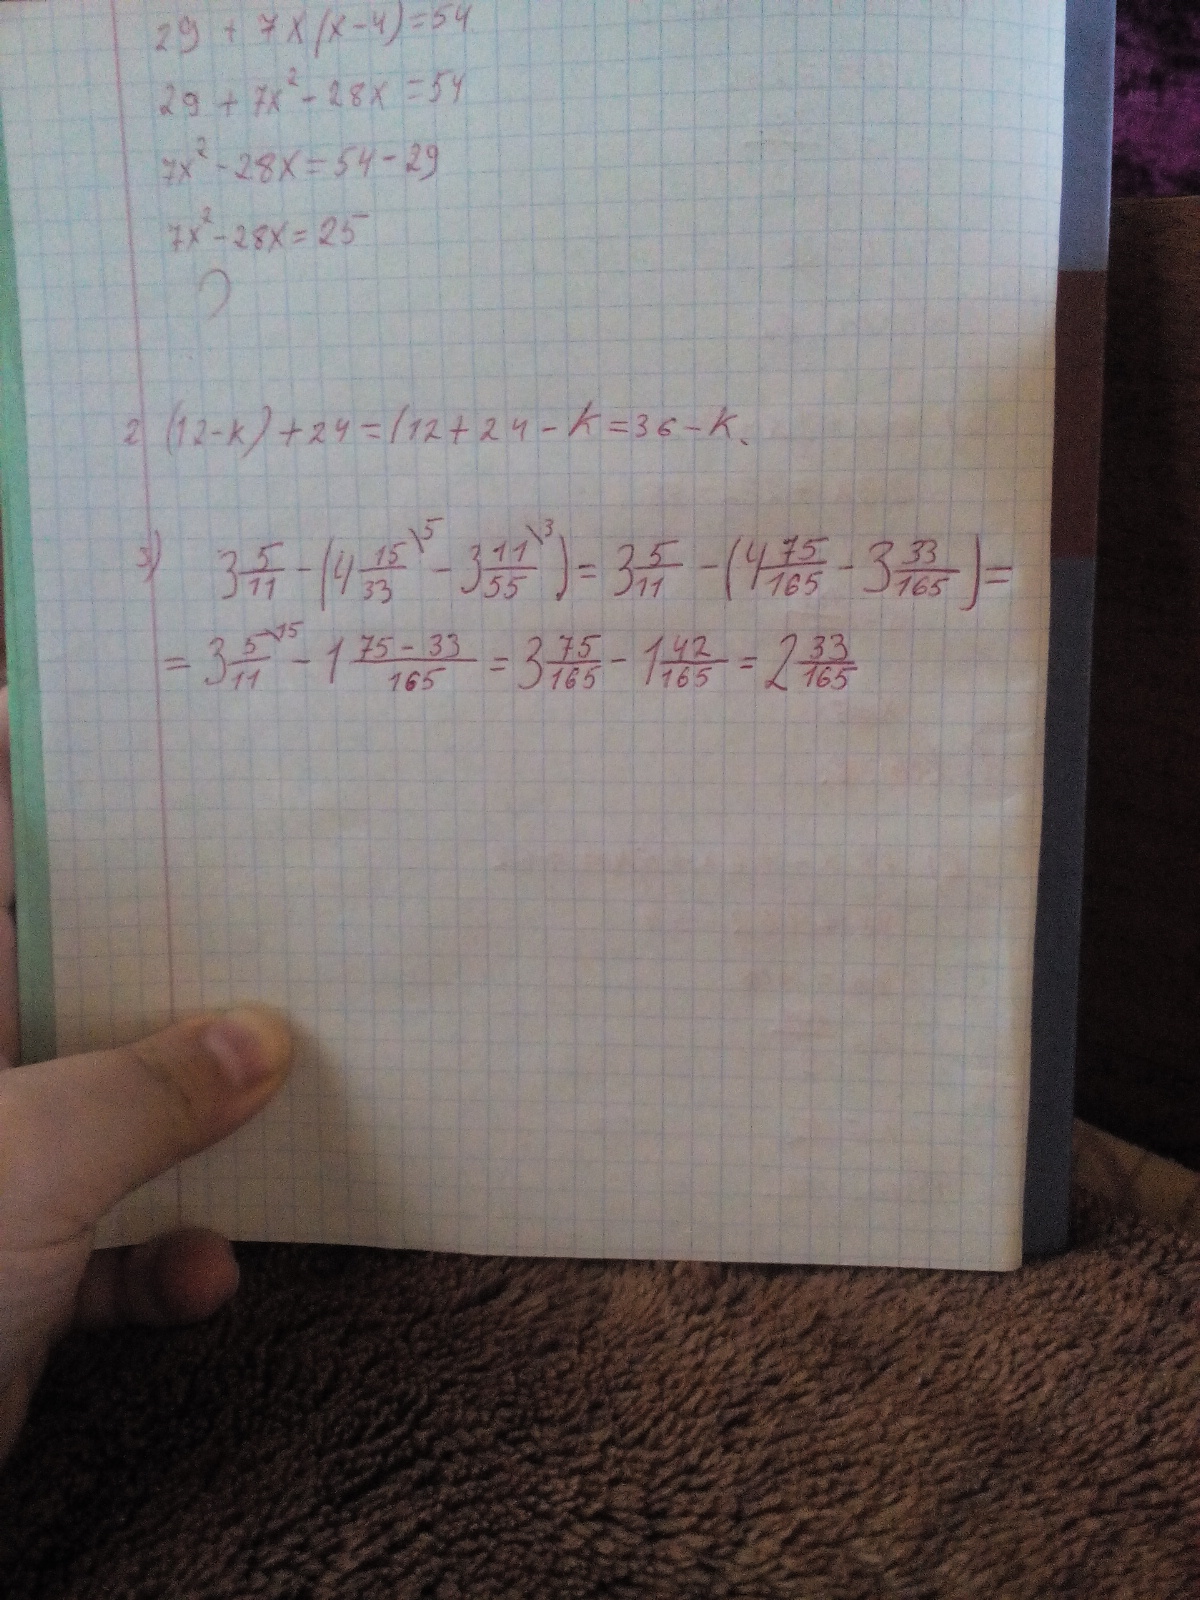 29 + 7x(x-4)=54
29 + 7x² - 28x = 54
7x² - 28x = 54 - 29
7x² - 28x = 25
2) (12-k) + 24 = (12 + 24 - k = 36 - k.
3) 3 5/11 - (4 15/33 \5 - 3 11/55 \3) = 3 5/11 - (4 75/165 - 3 33/165) =
= 3 5/11 \15 - 1 75-33/165 = 3 75/165 - 1 42/165 = 2 33/165